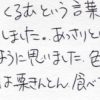 くるむという言
しました。あっさりと
ように思いました。色
は栗きんとん食べて